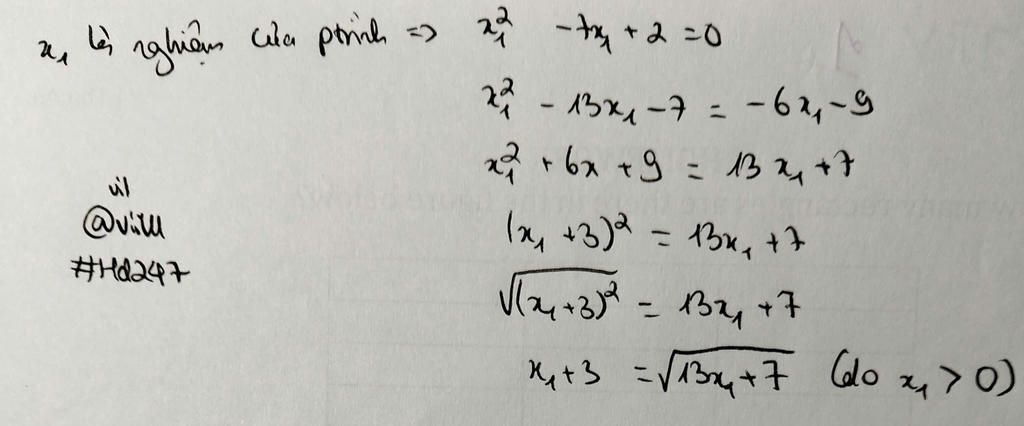 x₁ là nghiệm của ptrình => x₁² - 7x₁ + 2 = 0
x₁² - 13x₁ - 7 = -6x₁ - 9
x₁² + 6x + 9 = 13x₁ + 7
(x₁ + 3)² = 13x₁ + 7
√(x₁+3)² = 13x₁ + 7
x₁ + 3 = √13x₁ + 7 (do x₁ > 0)
#Hd247